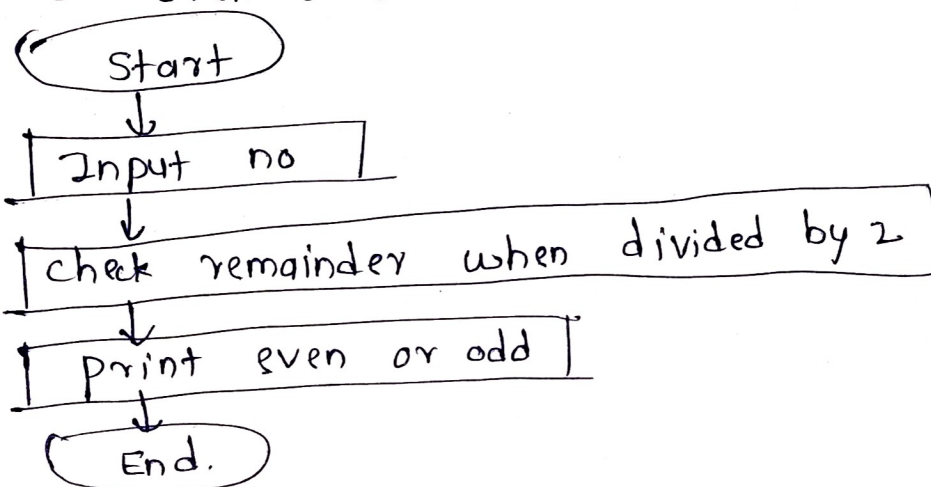 Start
Input no
check remainder when divided by 2
print even or odd
End.